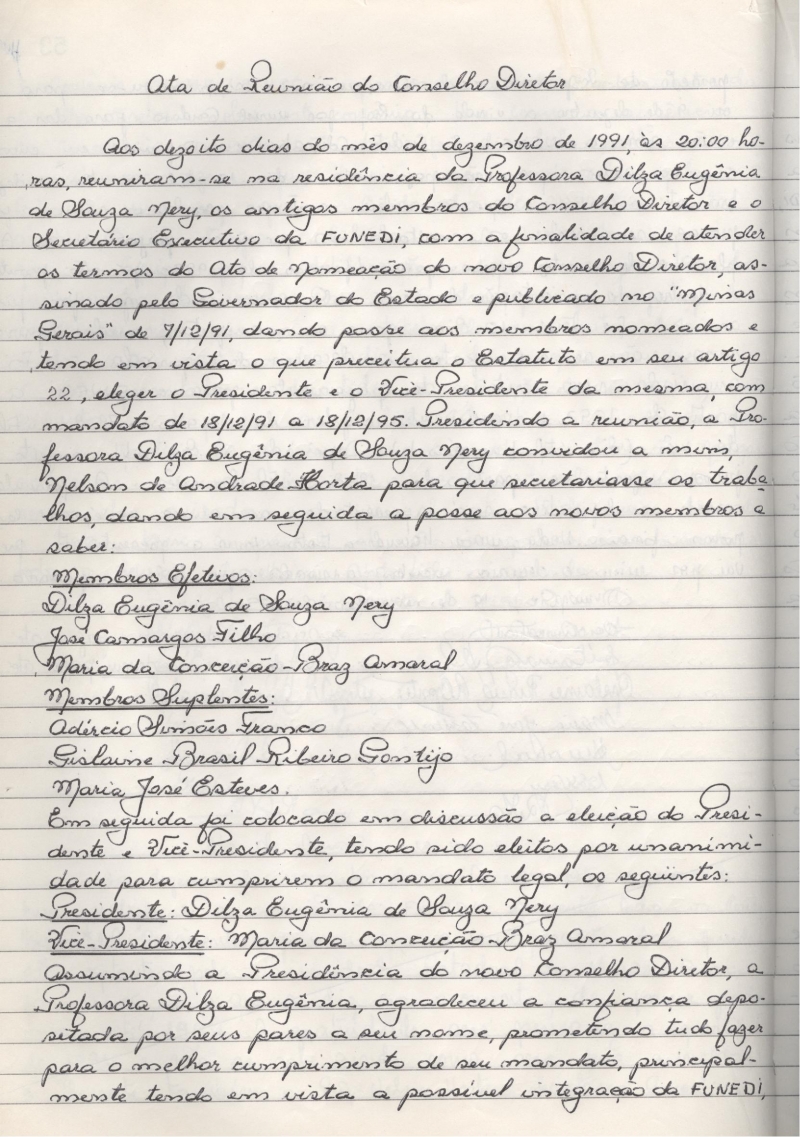 Ata de Reunião do Conselho Diretor
Aos dezoito dias do mês de dezembro de 1991, às 20:00 ho-
ras, reuniram-se na residência da Professora Dilza Eugênia
de Souza Nery, os antigos membros do Conselho Diretor e o
Secretário Executivo da FUNEDI, com a finalidade de atender
os termos do Ato de Nomeação do novo Conselho Diretor, as-
sinado pelo Governador do Estado e publicado no "Minas
Gerais" de 7/12/91, dando posse aos membros nomeados e
tendo em vista o que preceitua o Estatuto em seu artigo
22, eleger o Presidente e o Vice-Presidente da mesma, com
mandato de 18/12/91 a 18/12/95. Presidindo a reunião, a Pro-
fessora Dilza Eugênia de Souza Nery convidou a mim,
Nelson de Andrade Horta para que secretariasse os traba-
lhos, dando em seguida a posse aos novos membros a
saber:
Membros Efetivos:
Dilza Eugênia de Souza Nery
José Camargos Filho
Maria da Conceição Braz Amaral
Membros Suplentes:
Adércio Simões Franco
Gislaine Brasil Ribeiro Gontijo
Maria José Esteves.
Em seguida foi colocado em discussão a eleição do Presi-
dente e Vice-Presidente, tendo sido eleitos por unanimi-
dade para cumprirem o mandato legal, os seguintes:
Presidente: Dilza Eugênia de Souza Nery
Vice-Presidente: Maria da Conceição Braz Amaral
Assumindo a Presidência do novo Conselho Diretor, a
Professora Dilza Eugênia, agradeceu a confiança depo-
sitada por seus pares a seu nome, prometendo tudo fazer
para o melhor cumprimento de seu mandato, principal-
mente tendo em vista a possível integração da FUNEDI,